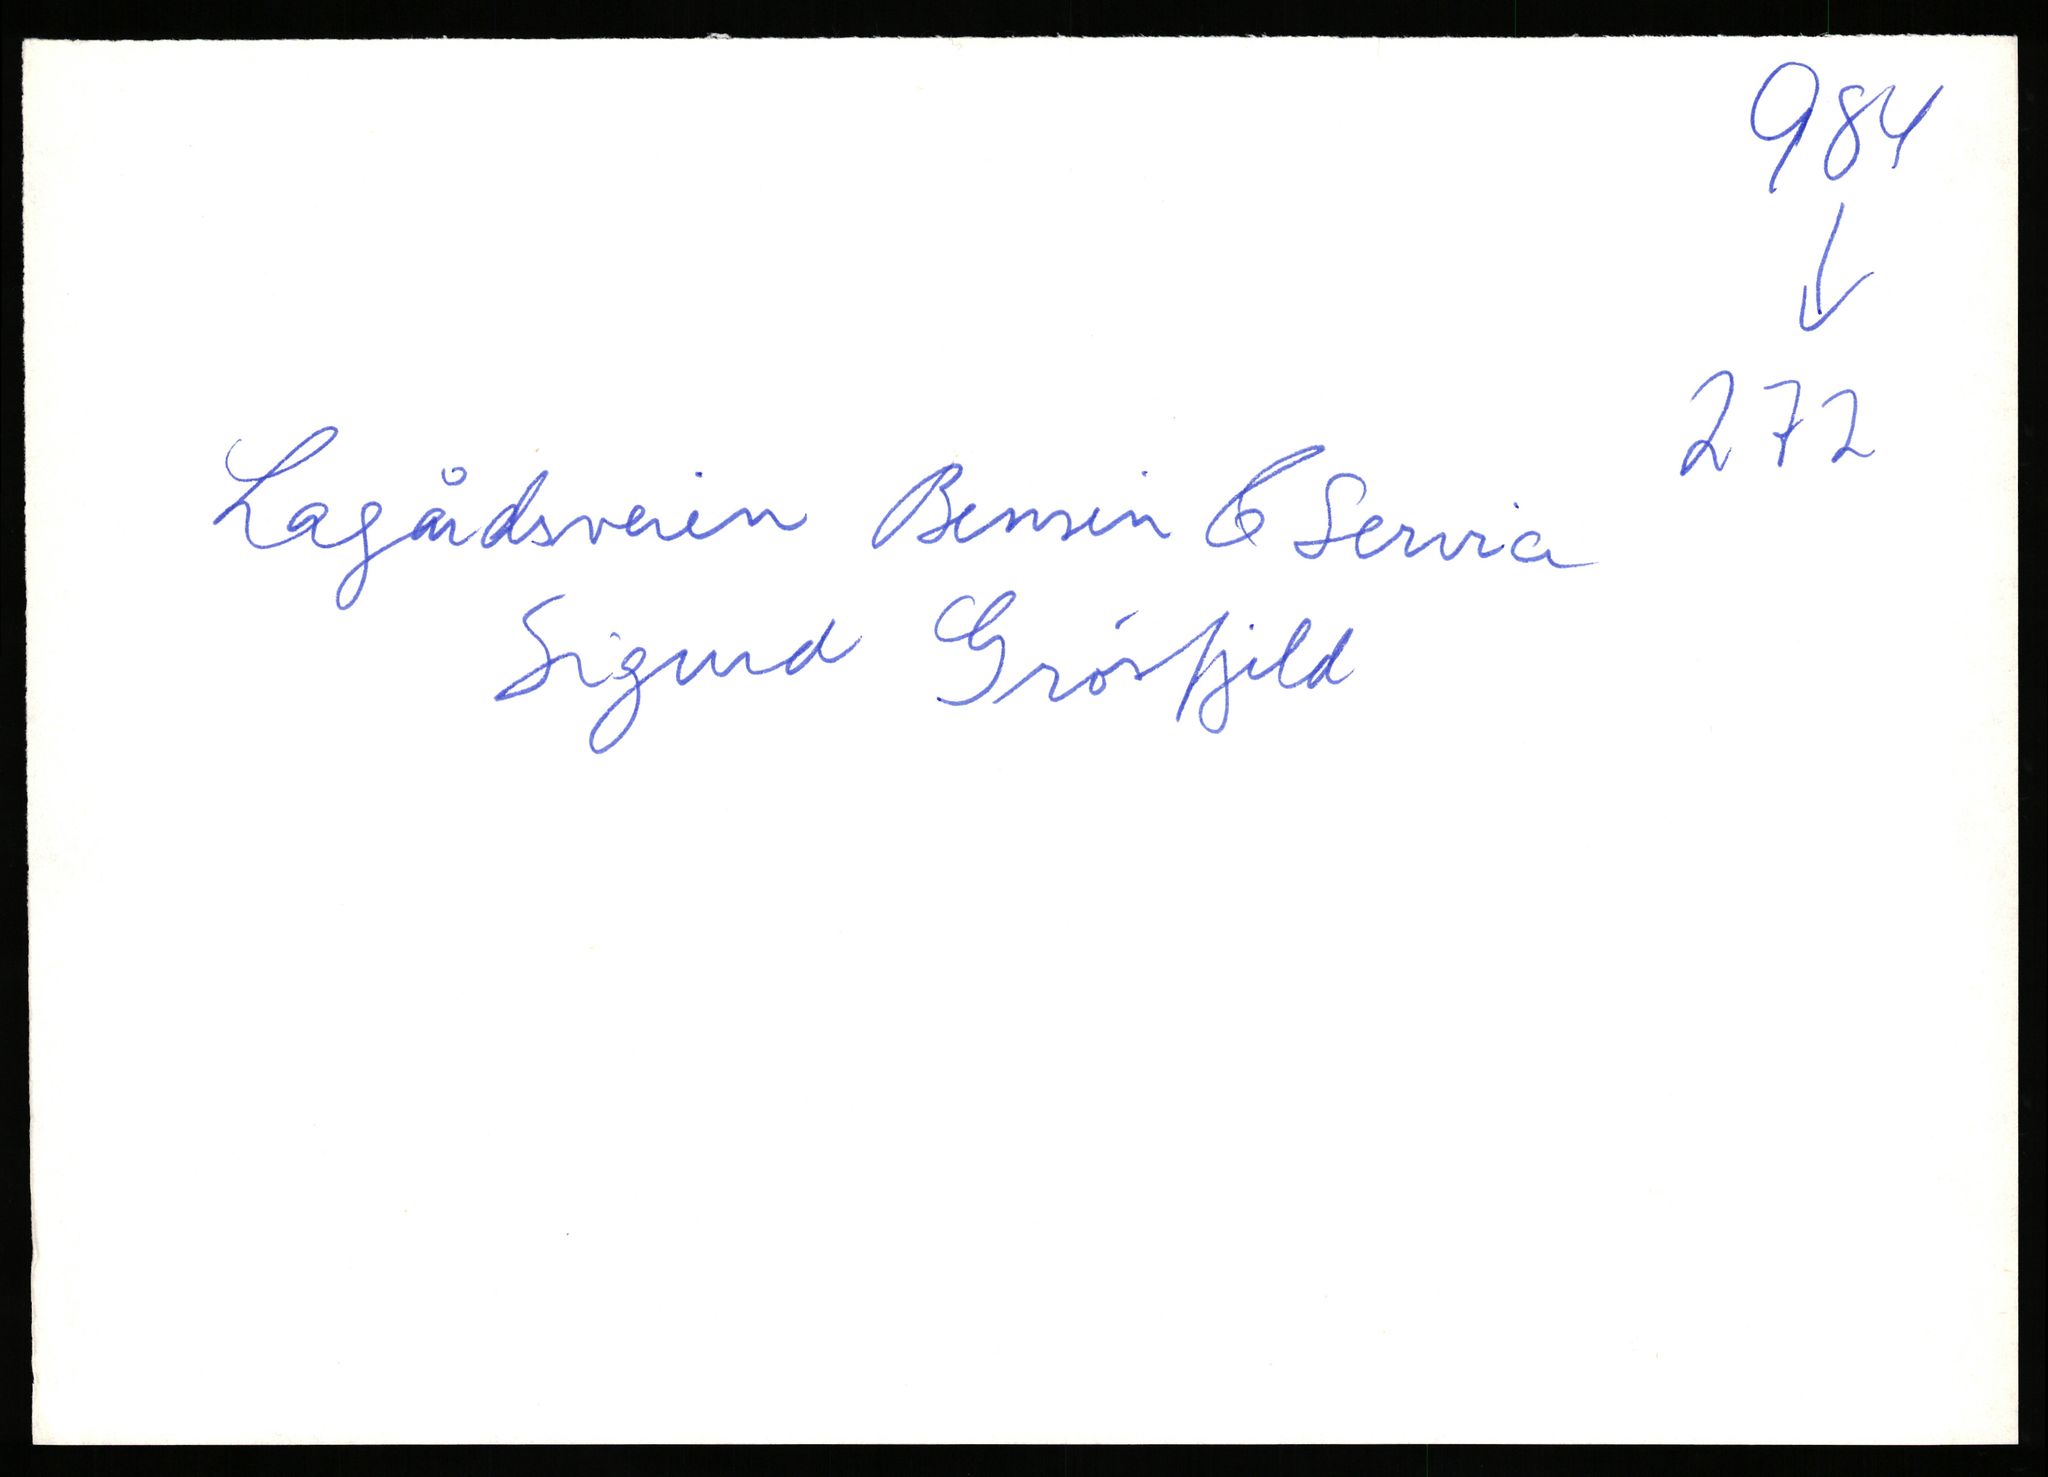 984
↓
272
Lagårdsveien Bensin & Service
Sigurd Grøsfjeld